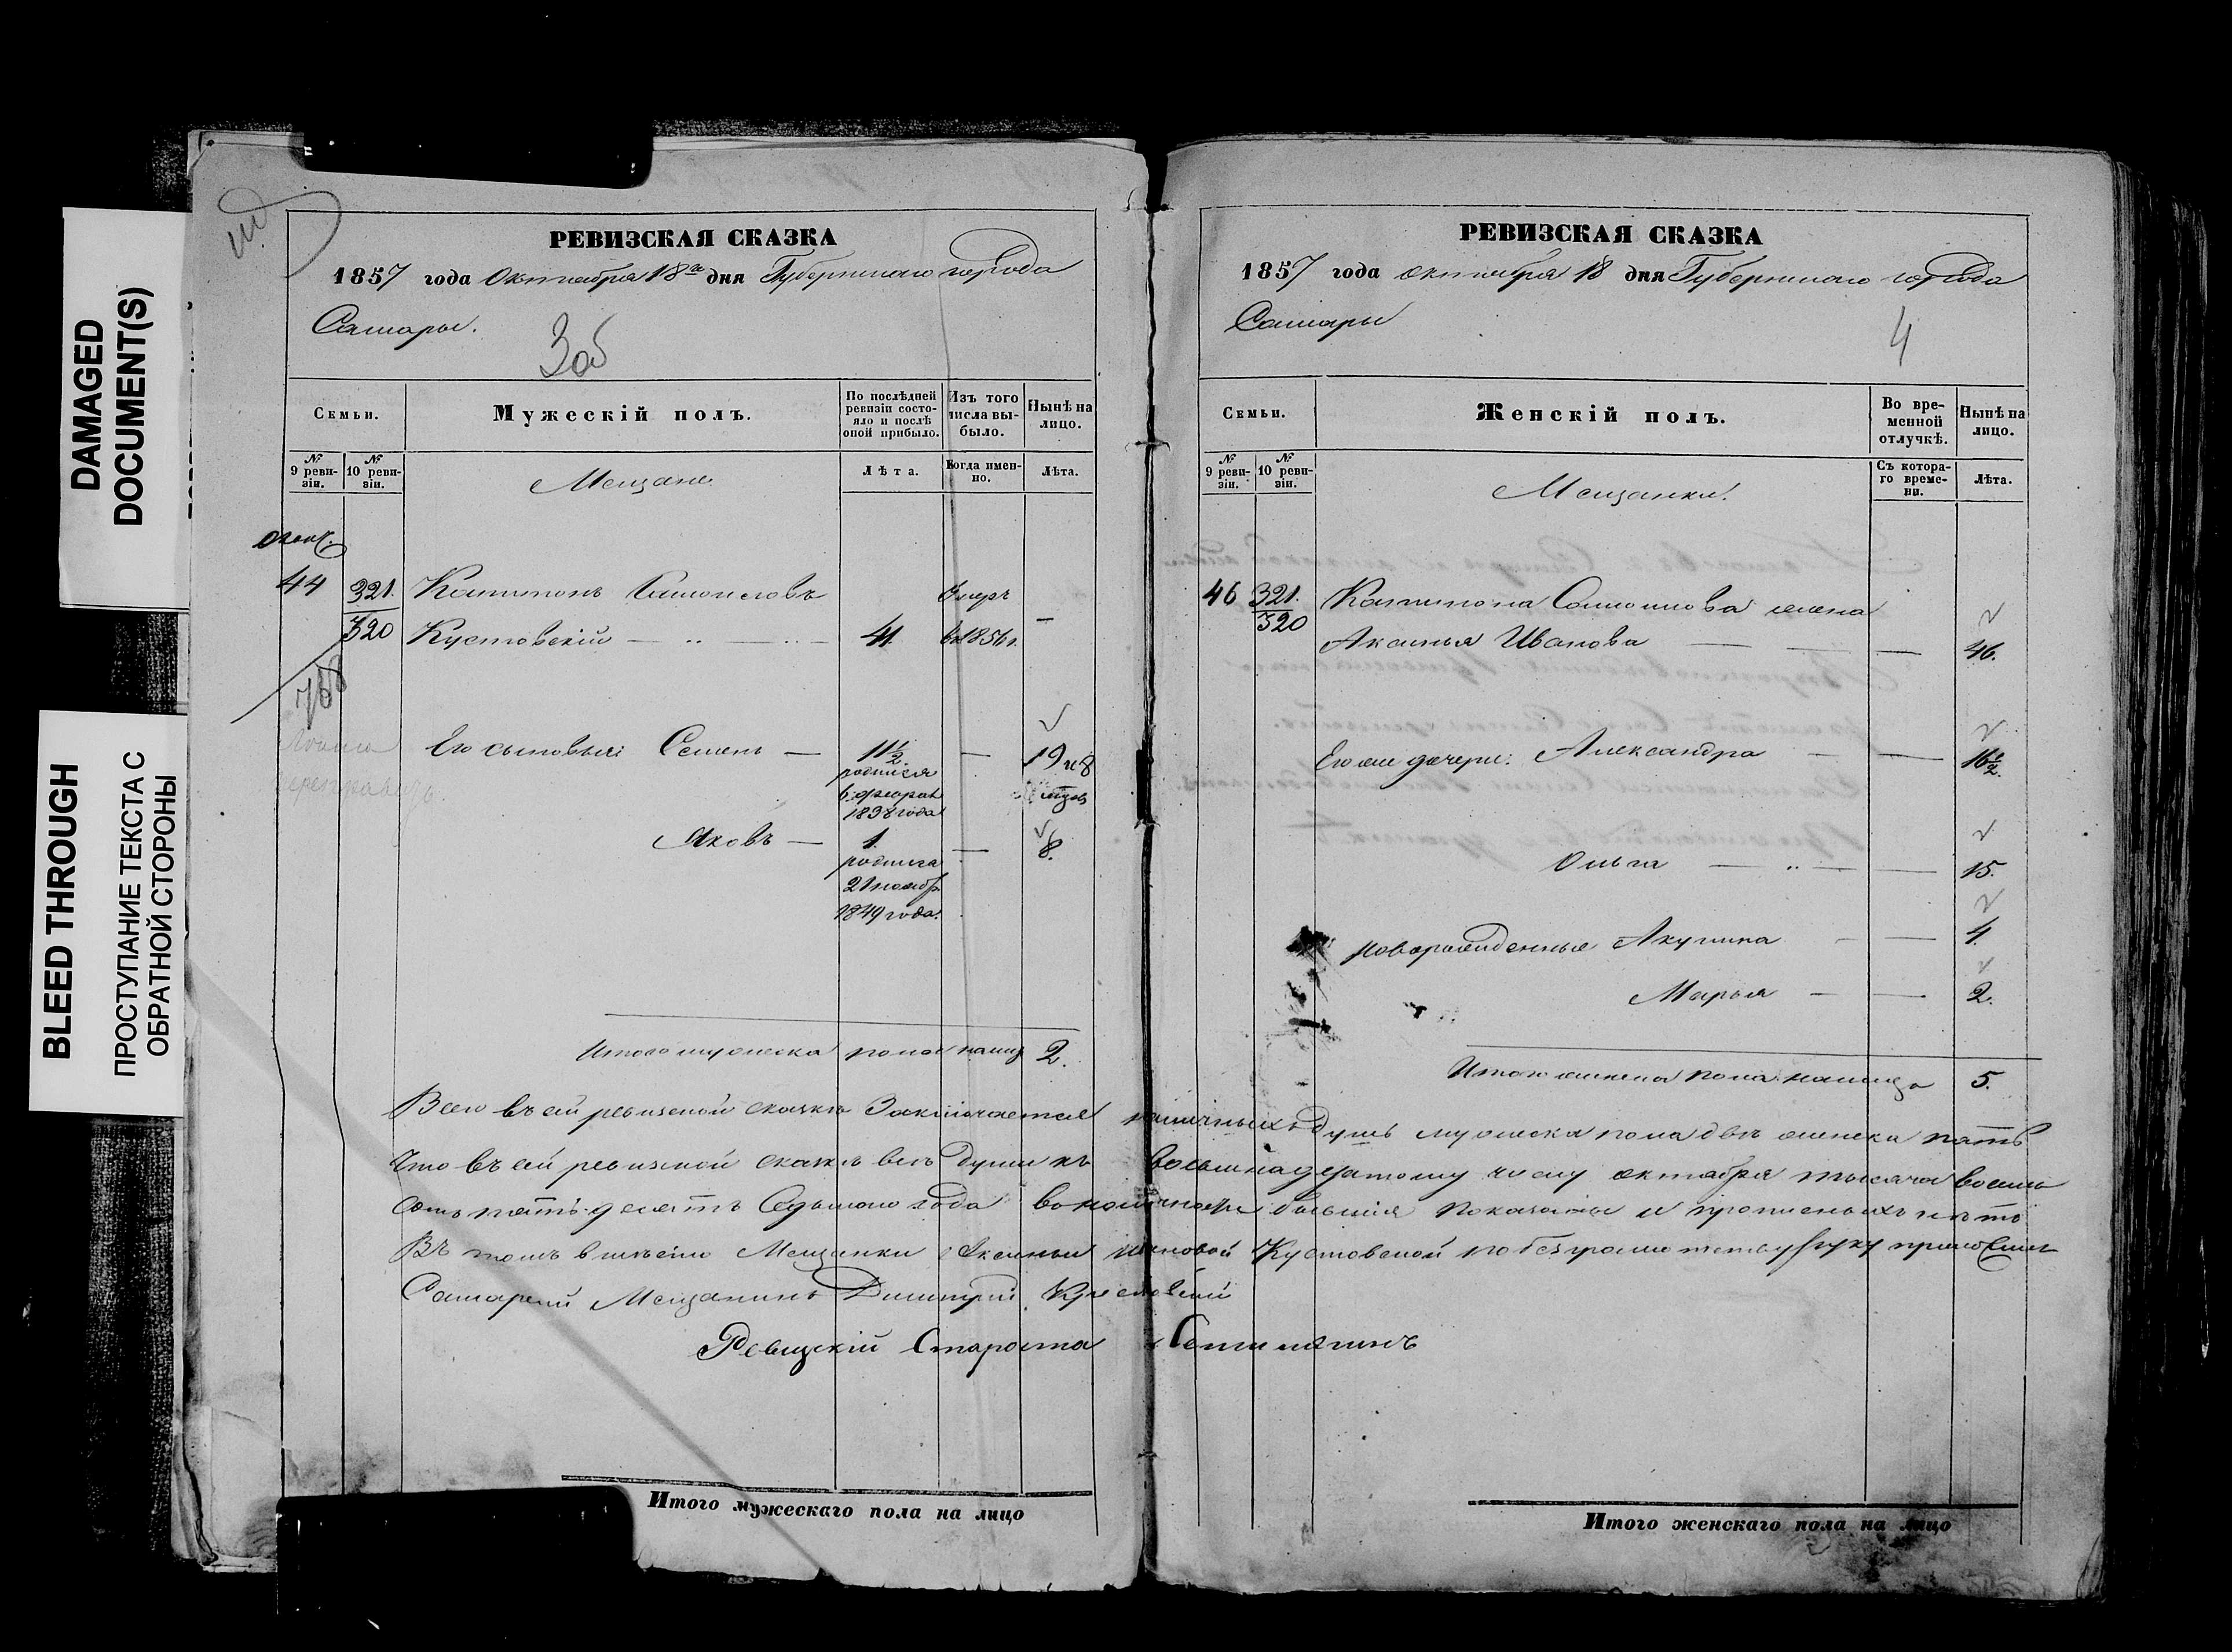 DAMAGED
DOCUMENT(S)
BLEED THROUGH
ПРОСТУПАНИЕ ТЕКСТА С
ОБРАТНОЙ СТОРОНЫ
РЕВИЗСКАЯ СКАЗКА
1857 года Октября 18го дня Губернскаго города
Самары.
3об
Семьи.
Мужескій полъ.
По послѣдней ревизіи состояло и послѣ оной прибыло.
Изъ того числа выбыло.
Нынѣ на лицо.
№ 9 ревизіи.
№ 10 ревизіи.
Мещане.
Лѣта.
Когда именно.
Лѣта.
44 321. Капитонъ Самойловъ Умеръ
320 Кустовскій — 41. въ 1856 г. —
768
Его сыновья: Семенъ — 11½ — 19 и 8
родился
6 феврал
1838 года
Яковъ — 1. — 8.
родился
21 ноябр
1849 года.
Итого мужеска пола налицо 2.
РЕВИЗСКАЯ СКАЗКА
1857 года октября 18 дня Губернскаго города
Самары
4
Семьи.
Женскій полъ.
Во временной отлучкѣ.
Нынѣ на лицо.
№ 9 ревизіи.
№ 10 ревизіи.
Мещанки.
Съ котораго времени.
Лѣта.
46 321. Капитона Самойлова жена
320 Аксинья Иванова — 46.
Его же дочери: Александра — 16½.
Ольга — 15.
новорожденные Акулина — 4.
Марья — 2.
Итого женска пола налицо 5.
Всего въ сей ревизской сказкѣ Заключается наличныхъ душъ мужеска пола двѣ женска пять
Что въ сей ревизской сказкѣ все души къ восьмнадцатому числу октября тысяча восемь
сотъ пять десятъ Седьмого года въ наличности бывшія показаны и прописныхъ нѣтъ
Въ томъ вмѣсто Мещанки Аксиньи Ивановой Кустовской по безграмотству руку приложилъ
Самарскій Мещанинъ Димитрій
Ревизскій Староста
Итого мужескаго пола на лицо
Итого женскаго пола на лицо